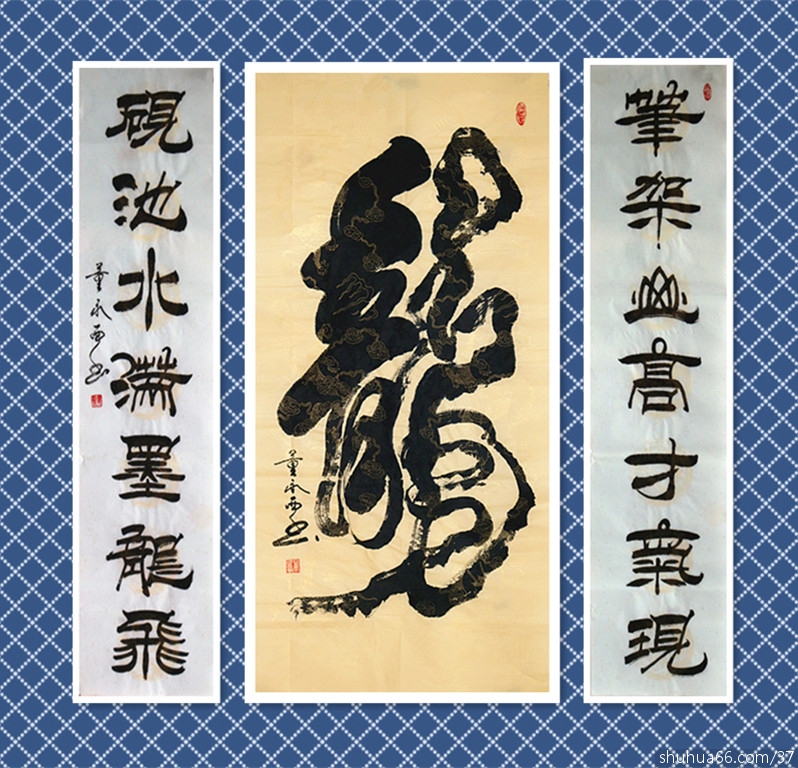 筆架山高才氣現
龍
董永西书
硯池水滿墨龍飛
董永西书
shuhua66.com/37